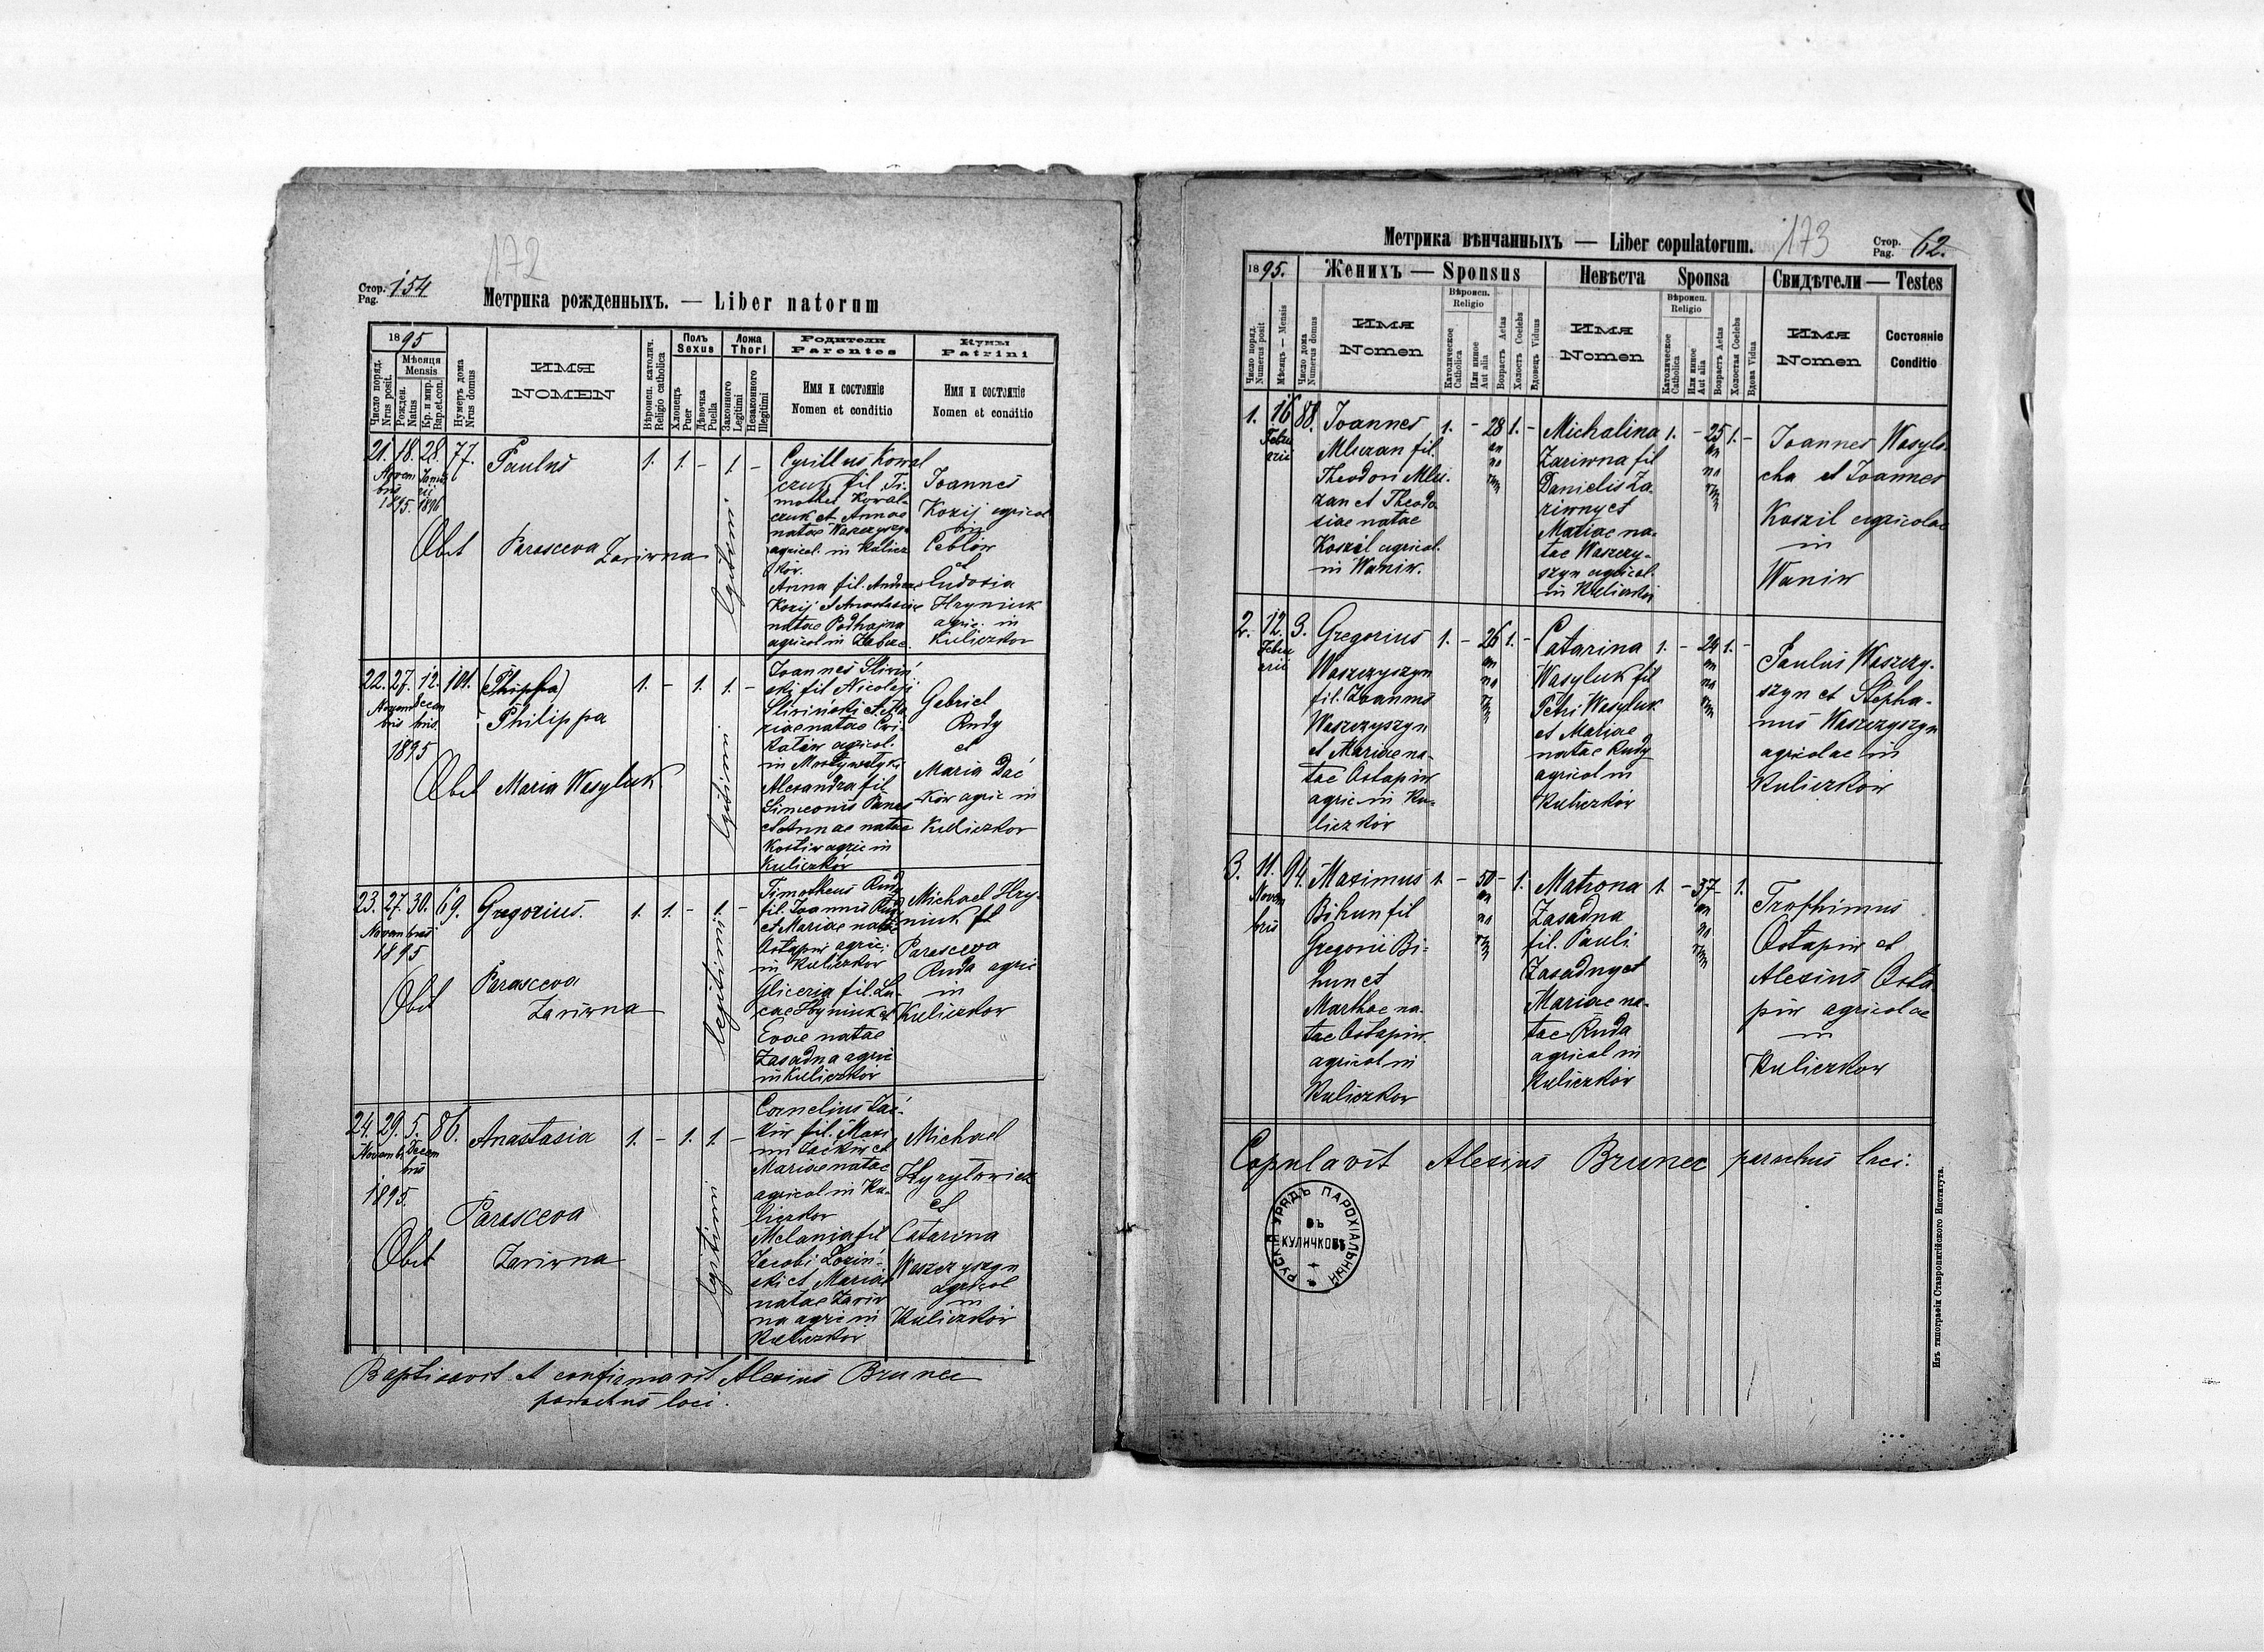 172
Стор. Pag. 154
Метрика рожденныхъ. — Liber natorum
1895
Число поряд. Nrus posit.
Мѣсяця Mensis
Рожден. Natus
Кр. и мир. Bap. et con.
Нумеръ дома Nrus domus
ИМЯ
NOMEN
Вѣроисп. католич. Religio catholica
Полъ Sexus
Хлопецъ Puer
Дѣвочка Puella
Ложа Thori
Законного Legitimi
Незаконного Illegitimi
Родители
Parentes
Имя и состояніе
Nomen et conditio
Кумы
Patrini
Имя и состояніе
Nomen et conditio
21. 18. 28. 77. Paulus 1. 1. – 1. –
Novem
bris
1895. 1896
Obst Parasceva
Zariwna
legitimi
Cyrillus Kowal
czuk fil. Ti-
mothei Kowal-
czuk et Annae
natae Waszczyszyn
agricol. in Kulicz
ków.
Anna fil. Andreae
Kozij et Anastasiae
natae Podhajna
agricol in
Joannes
Kozij agricol
in
Ceblów
et
Eudoxia
Hryniuk
agric. in
Kuliczkow
22. 27. 12. 101. (Phippa) 1. – 1. 1. –
Novem Decem
bris bris.
Philippa
1895
Obst Maria Wasyluk
legitimi
Joannes Sliwiń
ski fil Nicolaji
Sliwiński et Ma
riae natae
agricol.
in Mosty wielkie
Alexandra fil
Simeonis Panas
et Annae natae
Kostiw agric in
Kuliczków
Gabriel
Rudy
et
Maria Dać
ków agric in
Kuliczkow
23. 27. 30. 69. Gregorius. 1. 1. – 1. –
Novem bris
1895
Obst Parasceva
Zariwna
legitimi
Timotheus Rudy
fil. Joannis Rudy
et Mariae natae
Ostapiw agric.
in Kuliczkow
Gliceria fil. Lu-
cae Hryniuk et
Evae natae
Zasadna agric
in Kuliczków
Michael Hry-
niuk et
Parasceva
Ruda agric
in
Kuliczkow
24. 29. 5. 86. Anastasia 1. – 1. 1. –
Novemb. Decem
bris
1895.
Obst Parasceva
Zariwna
legitimi
Cornelius
kiw fil. Maxi
mi et
Mariae natae
agricol in Ku-
liczkow
Melania fil
Jacobi Loziń-
ski et Mariae
natae Zariw
na agric in
Kuliczków
Michael
Hyrylowicz
et
Catarina
Waszczyszyn
agricol
in
Kuliczków
Baptisavit et confirmavit Alexius Brunec
parochus loci.
173
Метрика вѣнчанныхъ — Liber copulatorum.
Стор. Pag. 62.
1895.
Число поряд. Numerus posit
Мѣсяць — Mensis
Число дома Numerus domus
Женихъ — Sponsus
ИМЯ
Nomen
Вѣроисп. Religio
Католическое Catholica
Или иное Aut alia
Возрастъ Aetas
Холостъ Coelebs
Вдовецъ Viduus
Невѣста Sponsa
ИМЯ
Nomen
Вѣроисп. Religio
Католическое Catholica
Или иное Aut alia
Возрастъ Aetas
Холостая Coelebs
Вдова Vidua
Свидѣтели — Testes
ИМЯ
Nomen
Состояніе
Conditio
1. 16 88. Joannes 1. – 28 1. –
Febru
arii
Mluzan fil.
Theodori Mlu-
zan et Theodo
siae natae
Koszil agricol.
in Waniw.
an
no
rum
Michalina 1. – 25 1. –
Zariwna fil
Danielis Za-
riwny et
Mariae na-
tae Waszczy-
szyn agricol.
in Kuliczków
an
no
rum
Joannes Wasylo
cha et Joannes
Koszil agricolae
in
Waniw
2. 12. 3. Gregorius 1. – 26 1. –
Febru
arii
Waszczyszyn
fil. Joannis
Waszczyszyn
et Mariae na-
tae Ostapiw
agric in Ku-
liczków
an
no
rum
Catarina 1. – 24 1. –
Wasyluk fil
Petri Wasyluk
et Mariae
natae Rudy
agricol in
Kuliczków
an
no
rum
Paulus Waszczy-
szyn et Stepha-
nus Waszczyszyn
agricolae in
Kuliczków
3. 11. 94. Maximus 1. – 50 – 1.
Novem
bris
Bihun fil
Gregorii Bi-
hun et
Marthae na-
tae Ostapiw.
agricol in
Kuliczkow
an
no
rum
Matrona 1. – 37 – 1.
Zasadna
fil. Pauli
Zasadny et
Mariae na-
tae Ruda
agricol in
Kuliczków
an
no
rum
Trophimus
Ostapiw et
Alexius Osta
piw agricolae
in
Kuliczkow
Copulavit Alexius Brunec parochus loci.
РУСКІЙ УРЯДЪ ПАРОХІАЛЬНЫЙ
ВЪ
КУЛИЧКОВѢ
Изъ типографіи Ставропигійского Института.